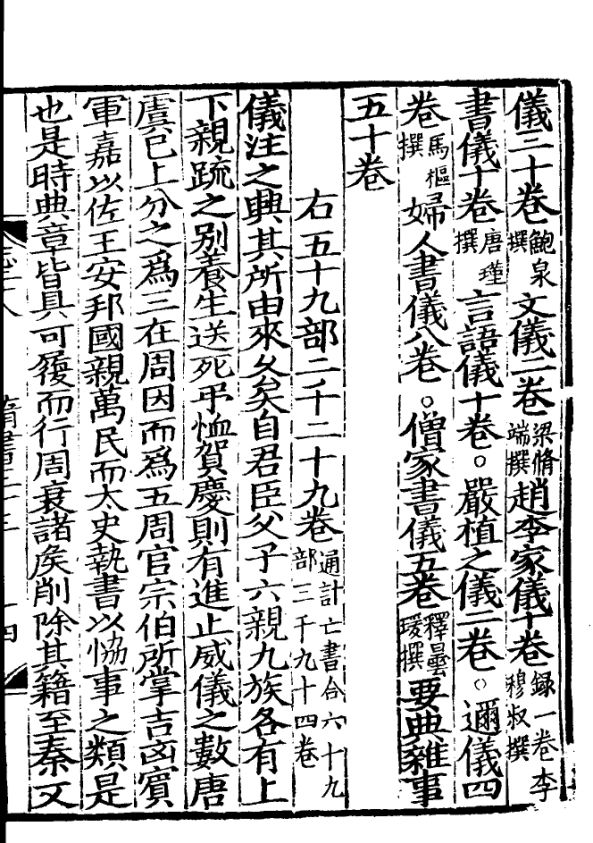 儀三十卷鮑泉撰文儀一卷梁脩端撰趙李家儀十卷録一卷李穆叔撰
書儀十卷唐瑾撰言語儀十卷。嚴植之儀二卷。邇儀四
卷馬樞撰婦人書儀八卷。僧家書儀五卷釋曇瑗撰要典雜事
五十卷
右五十九部二千二十九卷通計亡書合六十九部三千九十四卷
儀注之興其所由來久矣自君臣父子六親九族各有上
下親疏之别養生送死弔恤賀慶則有進止威儀之數唐
虞已上分之爲三在周因而爲五周官宗伯所掌吉凶賓
軍嘉以佐王安邦國親萬民而太史執書以協事之類是
也是時典章皆具可履而行周衰諸侯削除其籍至秦又